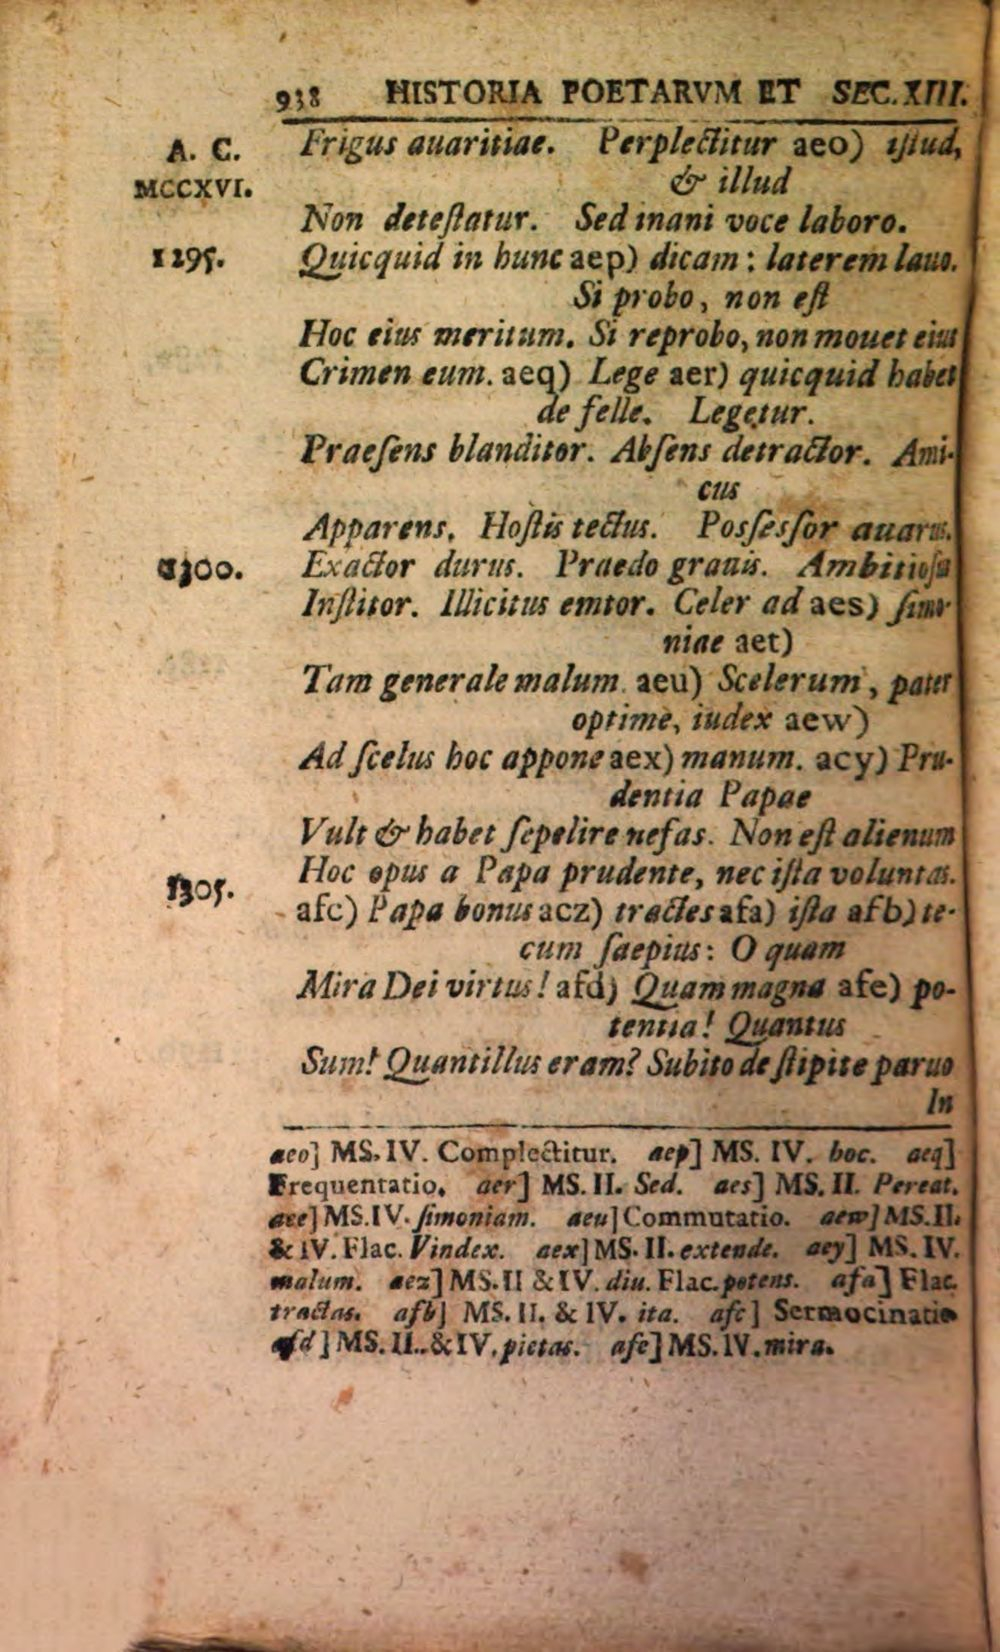 938 HISTORIA POETARVM ET SEC. XIII.
A. C. Frigus auaritiae. Perplectitur aeo) istud,
MCCXVI. & illud
Non detestatur. Sed inani voce laboro.
1295. Quicquid in hunc aep) dicam: laterem lauo.
Si probo, non est
Hoc eius meritum. Si reprobo, non mouet eius
Crimen eum. aeq) Lege aer) quicquid habet
de felle. Legetur.
Praesens blanditor. Absens detractor. Ami-
cus
Apparens. Hostis tectus. Possessor auarus.
1300. Exactor durus. Praedo grauis. Ambitiosus
Institor. Illicitus emtor. Celer ad aes) simo-
niae aet)
Tam generale malum. aeu) Scelerum, pater
optime, iudex aew)
Ad scelus hoc appone aex) manum. acy) Pru-
dentia Papae
Vult & habet sepelire nefas. Non est alienum
Hoc opus a Papa prudente, nec ista voluntas.
1305. afc) Papa bonus acz) tractes afa) ista afb) te-
cum saepius: O quam
Mira Dei virtus! afd) Quam magna afe) po-
tentia! Quantus
Sum! Quantillus eram? Subito de stipite paruo
In
aeo] MS. IV. Complectitur. aep] MS. IV. hoc. aeq]
Frequentatio. aer] MS. II. Sed. aes] MS. II. Pereat.
aee] MS. IV. simoniam. aeu] Commutatio. aew] MS. II.
& IV. Flac. Vindex. aex] MS. II. extende. aey] MS. IV.
malum. aez] MS. II & IV. diu. Flac. potens. afa] Flac.
tractas. afb] MS. II. & IV. ita. afc] Sermocinatio
afd] MS. II. & IV. pietas. afe] MS. IV. mira.